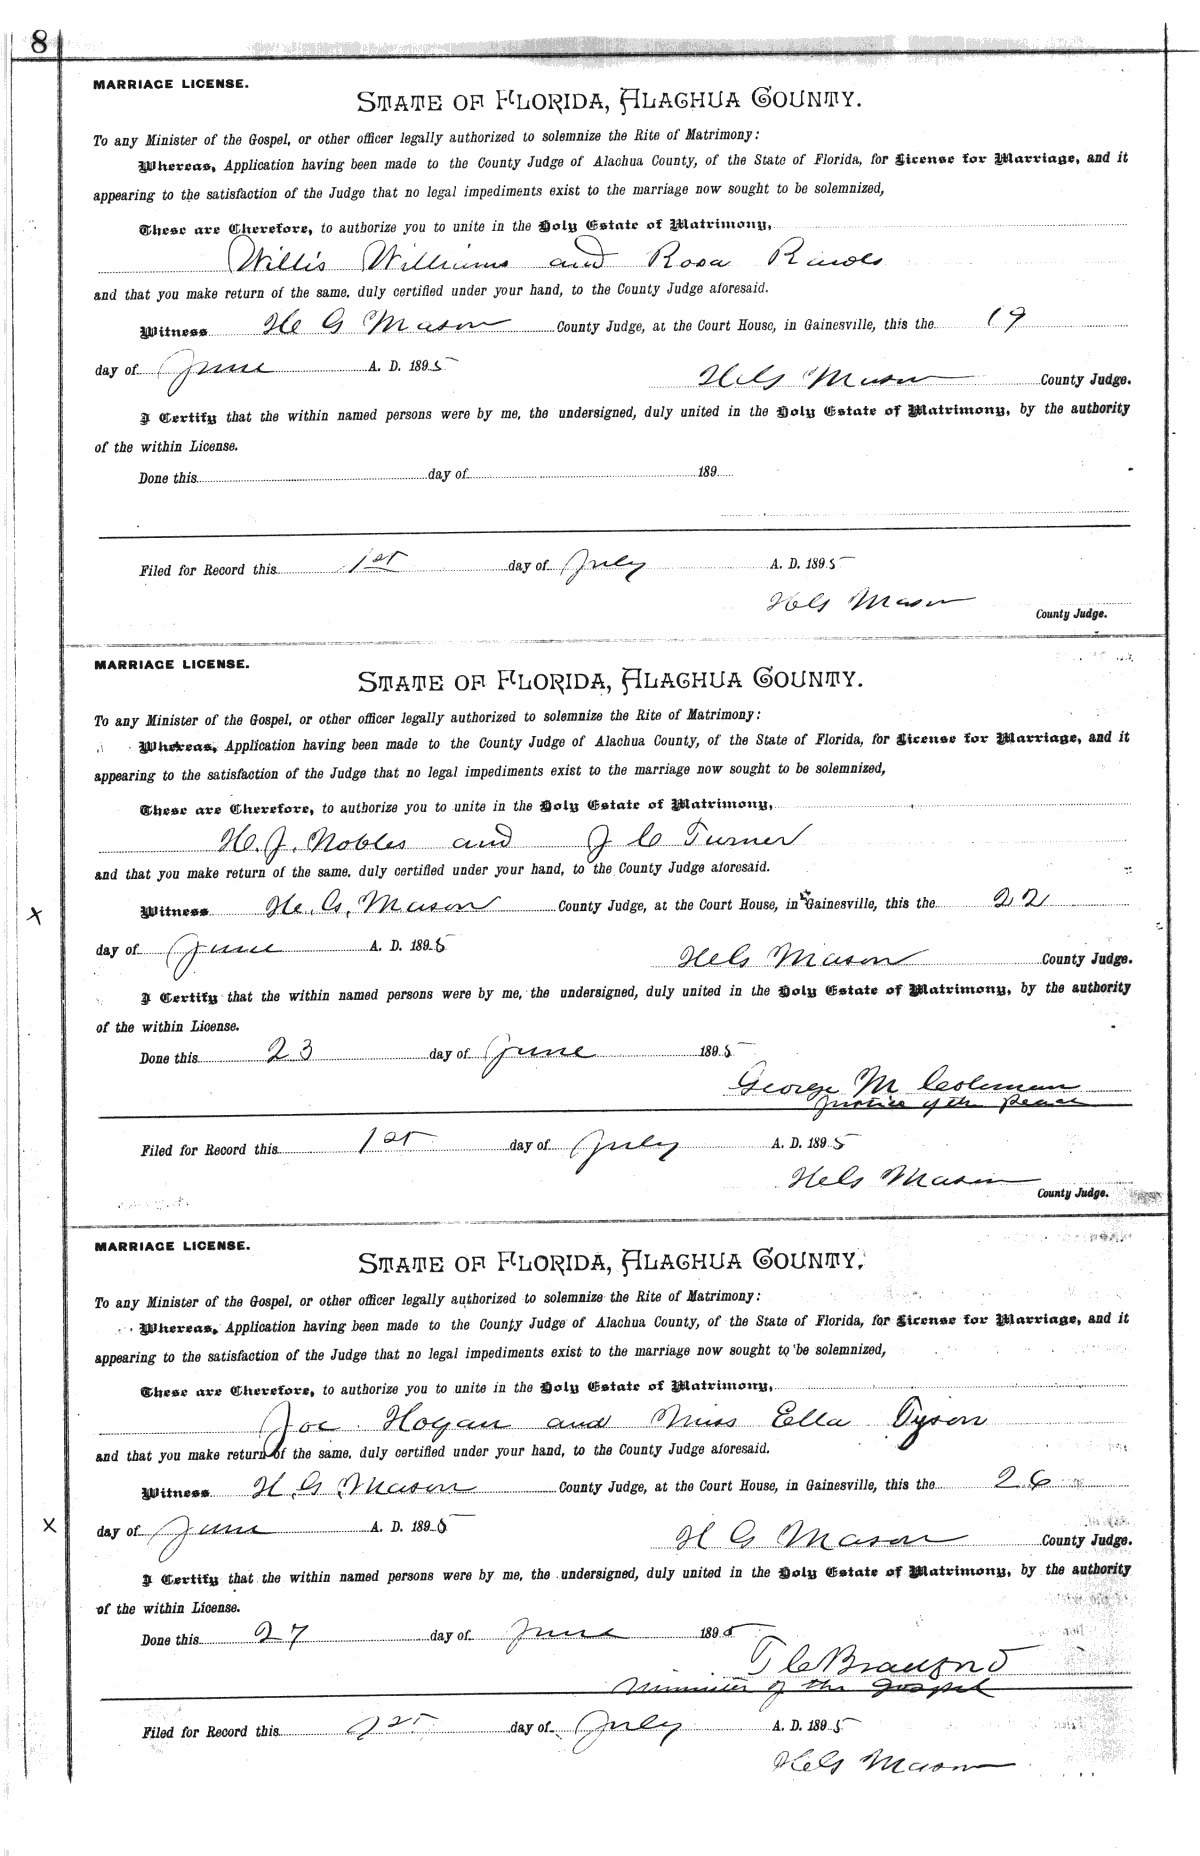 8
MARRIAGE LICENSE.
STATE OF FLORIDA, ALACHUA COUNTY.
To any Minister of the Gospel, or other officer legally authorized to solemnize the Rite of Matrimony:
Whereas, Application having been made to the County Judge of Alachua County, of the State of Florida, for License for Marriage, and it
appearing to the satisfaction of the Judge that no legal impediments exist to the marriage now sought to be solemnized,
These are Therefore, to authorize you to unite in the Holy Estate of Matrimony,
Willis Williams and Rosa
and that you make return of the same, duly certified under your hand, to the County Judge aforesaid.
Witness H G Mason County Judge, at the Court House, in Gainesville, this the 19
day of June A. D. 1895
H G Mason County Judge.
I Certify that the within named persons were by me, the undersigned, duly united in the Holy Estate of Matrimony, by the authority
of the within License.
Done this day of 189
Filed for Record this 1st day of July A. D. 1895
H G Mason
County Judge.
MARRIAGE LICENSE.
STATE OF FLORIDA, ALACHUA COUNTY.
To any Minister of the Gospel, or other officer legally authorized to solemnize the Rite of Matrimony:
Whereas, Application having been made to the County Judge of Alachua County, of the State of Florida, for License for Marriage, and it
appearing to the satisfaction of the Judge that no legal impediments exist to the marriage now sought to be solemnized,
These are Therefore, to authorize you to unite in the Holy Estate of Matrimony,
H. J. Nobles and J C Turner
and that you make return of the same, duly certified under your hand, to the County Judge aforesaid.
x Witness H. G. Mason County Judge, at the Court House, in Gainesville, this the 22
day of June A. D. 1895
H G Mason County Judge.
I Certify that the within named persons were by me, the undersigned, duly united in the Holy Estate of Matrimony, by the authority
of the within License.
Done this 23 day of June 1895
George M Coleman
Justice of the peace
Filed for Record this 1st day of July A. D. 1895
H G Mason
County Judge.
MARRIAGE LICENSE.
STATE OF FLORIDA, ALACHUA COUNTY.
To any Minister of the Gospel, or other officer legally authorized to solemnize the Rite of Matrimony:
Whereas, Application having been made to the County Judge of Alachua County, of the State of Florida, for License for Marriage, and it
appearing to the satisfaction of the Judge that no legal impediments exist to the marriage now sought to be solemnized,
These are Therefore, to authorize you to unite in the Holy Estate of Matrimony,
Joe Hogan and Miss Ella Tyson
and that you make return of the same, duly certified under your hand, to the County Judge aforesaid.
Witness H. G. Mason County Judge, at the Court House, in Gainesville, this the 26
x day of June A. D. 1895
H G Mason County Judge.
I Certify that the within named persons were by me, the undersigned, duly united in the Holy Estate of Matrimony, by the authority
of the within License.
Done this 27 day of June 1895
T C Bradford
Minister of the Gospel
Filed for Record this 1st day of July A. D. 1895
H G Mason